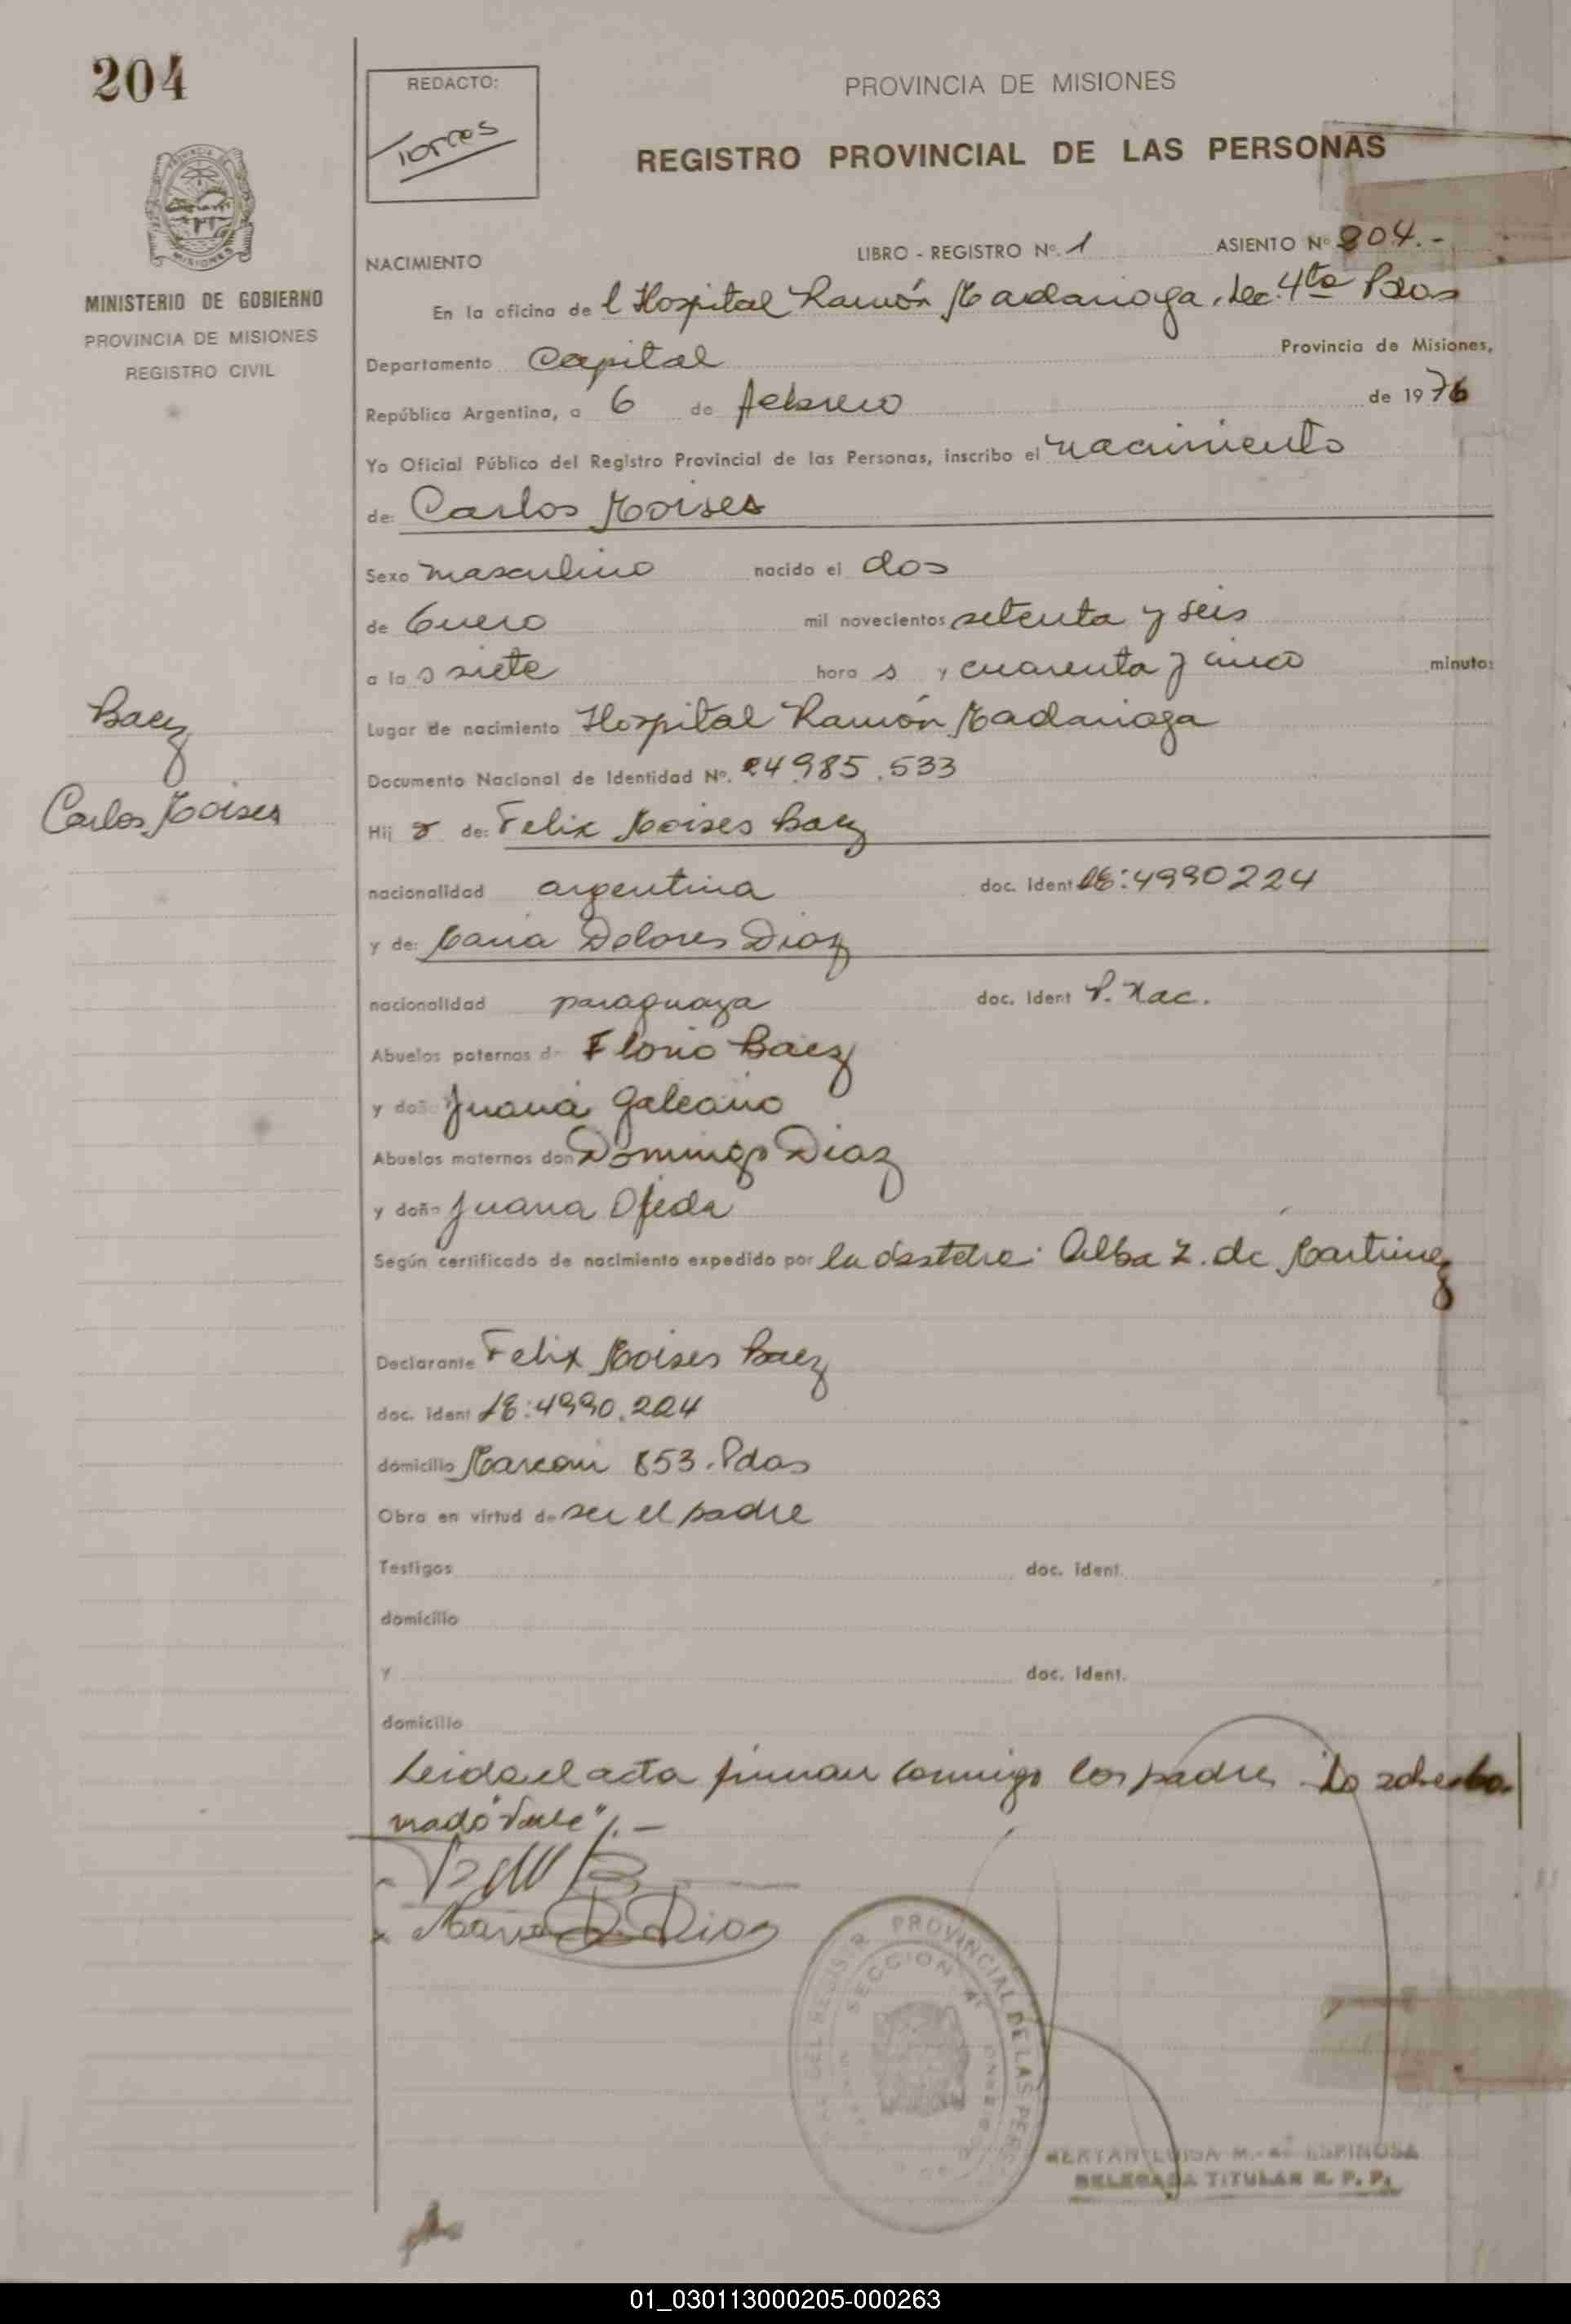 204
REDACTO:
Torres
PROVINCIA DE MISIONES
REGISTRO PROVINCIAL DE LAS PERSONAS
MINISTERIO DE GOBIERNO
PROVINCIA DE MISIONES
REGISTRO CIVIL
NACIMIENTO LIBRO - REGISTRO Nº. 1 ASIENTO Nº 204.-
En la oficina del Hospital Ramón Madariaga, Sec. 4ta Pdas
Departamento Capital Provincia de Misiones,
República Argentina, a 6 de febrero de 1976
Yo Oficial Público del Registro Provincial de las Personas, inscribo el nacimiento
de: Carlos Moises
Sexo masculino nacido el dos
de Enero mil novecientos setenta y seis
a las siete horas y cuarenta y cinco minutos
Lugar de nacimiento Hospital Ramón Madariaga
Documento Nacional de Identidad Nº. 24.985.533
Hijo de: Felix Moises Baez
nacionalidad argentina doc. Ident LE:4990224
y de: Maria Dolores Diaz
nacionalidad paraguaya doc. Ident P. Nac.
Abuelos paternos d Florio Baez
y doñ Juana Galeano
Abuelos maternos don Domingo Diaz
y doña Juana Ojeda
Según certificado de nacimiento expedido por la obstetra: Alba Z. de Martinez
Declarante Felix Moises Baez
doc. ident LE:4990.224
domicilio Marconi 853. Pdas
Obra en virtud de ser el padre
Testigos doc. Ident.
domicilio
y doc. Ident.
domicilio
Leida el acta firman conmigo los padres. Lo sobrebo
rrado "Vale"/.-
Maria D. Diaz
Baez
Carlos Moises
PROVINCIAL DE LAS PERS
SECCION 4ª
LUISA M. de ESPINOSA
DELEGADA TITULAR R. P. P.
01_030113000205-000263